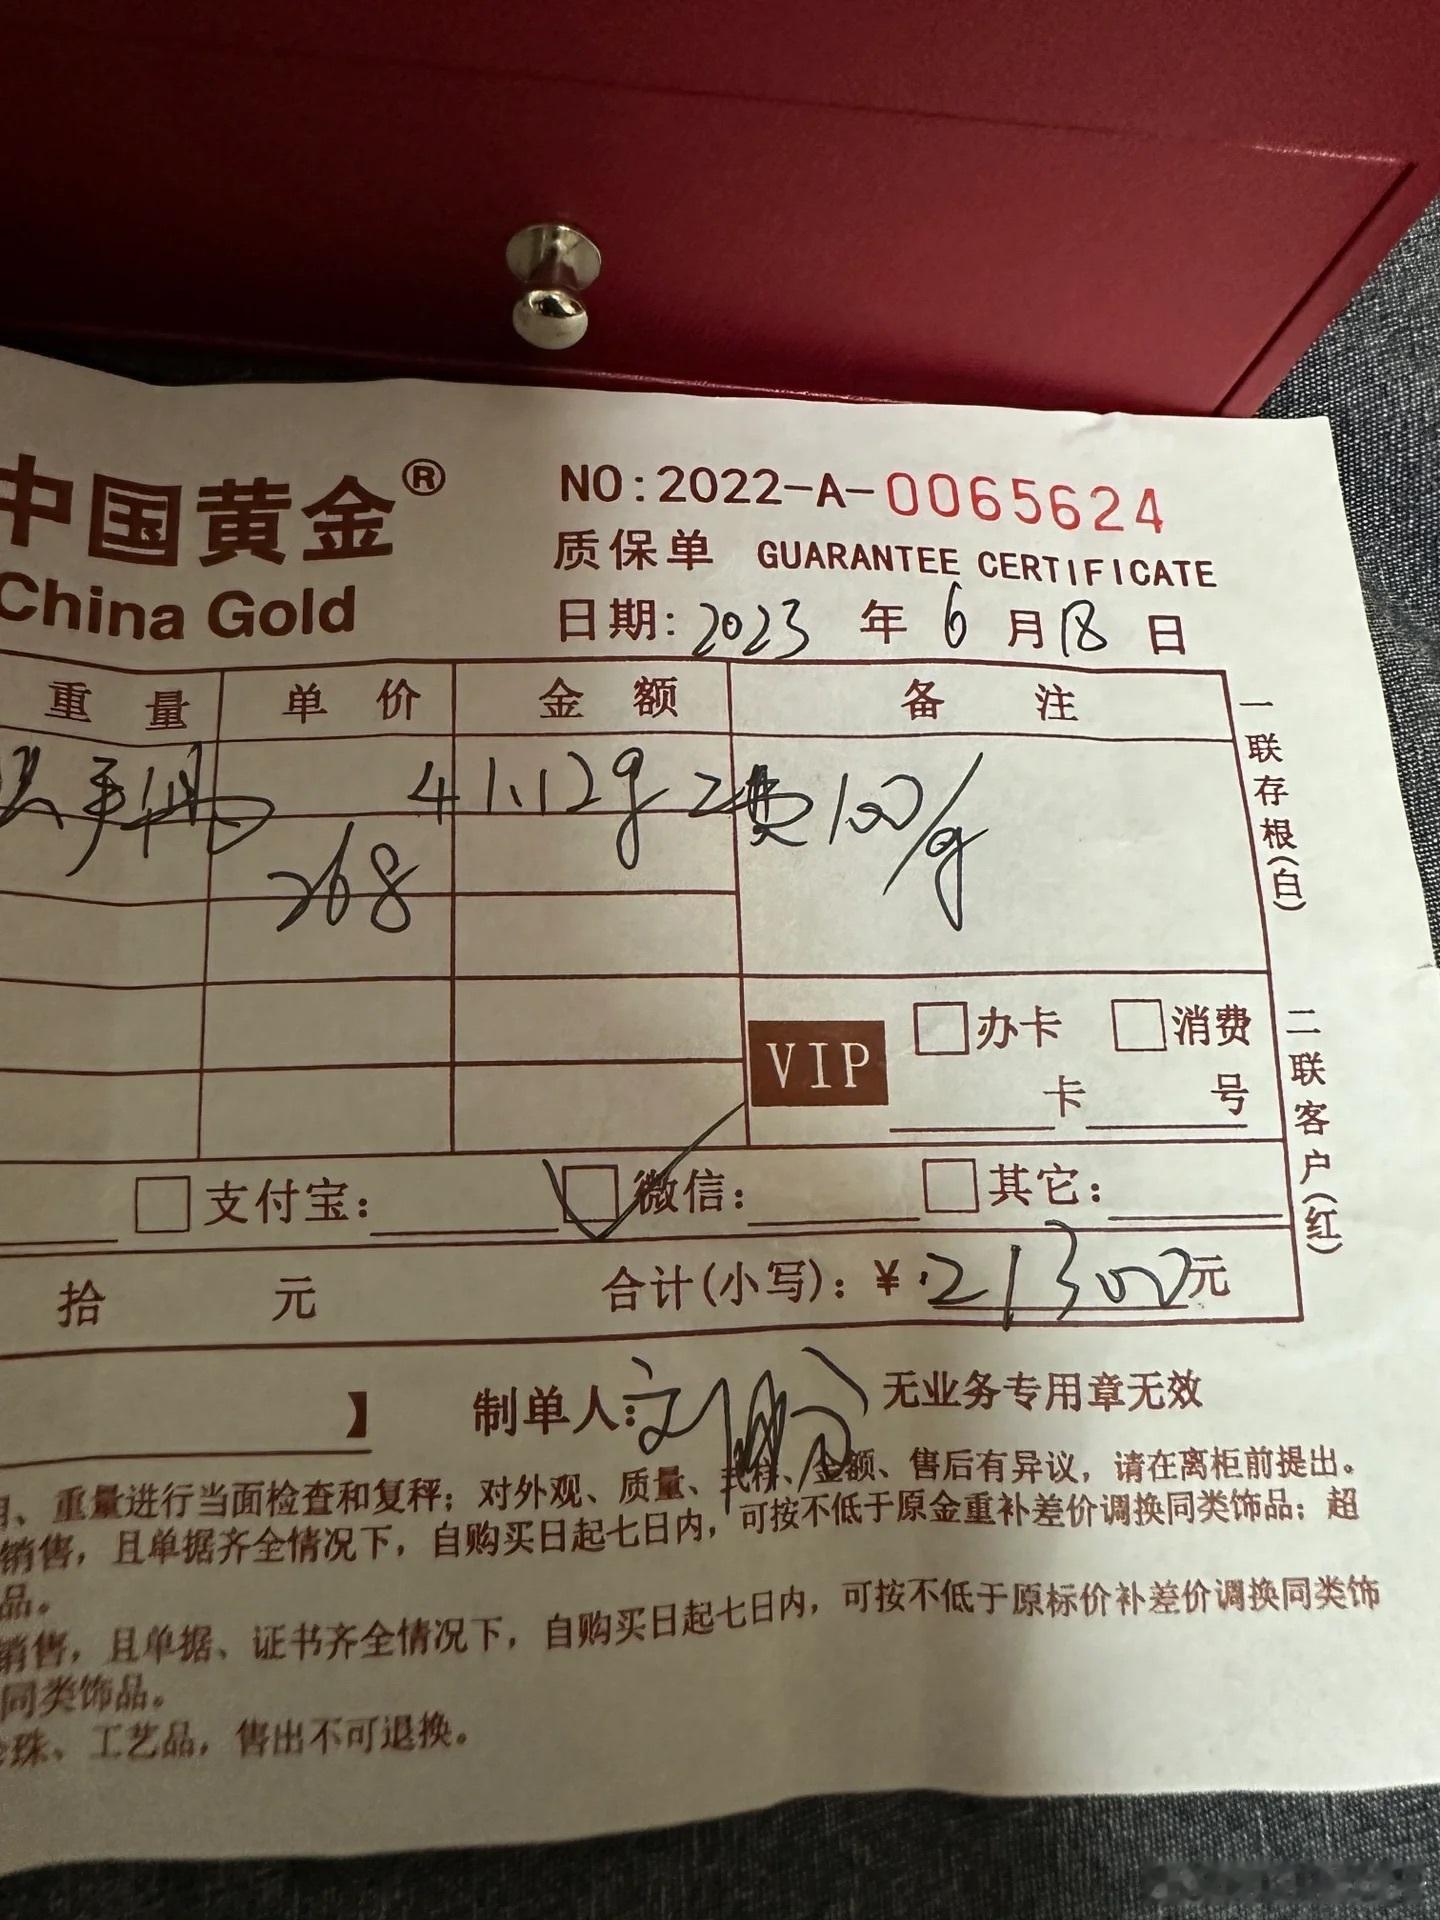 中国黄金®
China Gold
NO:2022-A-0065624
质保单 GUARANTEE CERTIFICATE
日期: 2023 年 6 月 18 日
重量 单价 金额 备注
手镯 41.12g 工费100/g
268
VIP 办卡 消费
卡 号
支付宝: 微信: 其它:
拾 元 合计(小写): ¥ 21300 元
】 制单人: 无业务专用章无效
、重量进行当面检查和复秤；对外观、质量、式样、金额、售后有异议，请在离柜前提出。
销售，且单据齐全情况下，自购买日起七日内，可按不低于原金重补差价调换同类饰品；超
品。
销售，且单据、证书齐全情况下，自购买日起七日内，可按不低于原标价补差价调换同类饰
同类饰品。
珠、工艺品，售出不可退换。
一联存根(白)
二联客户(红)